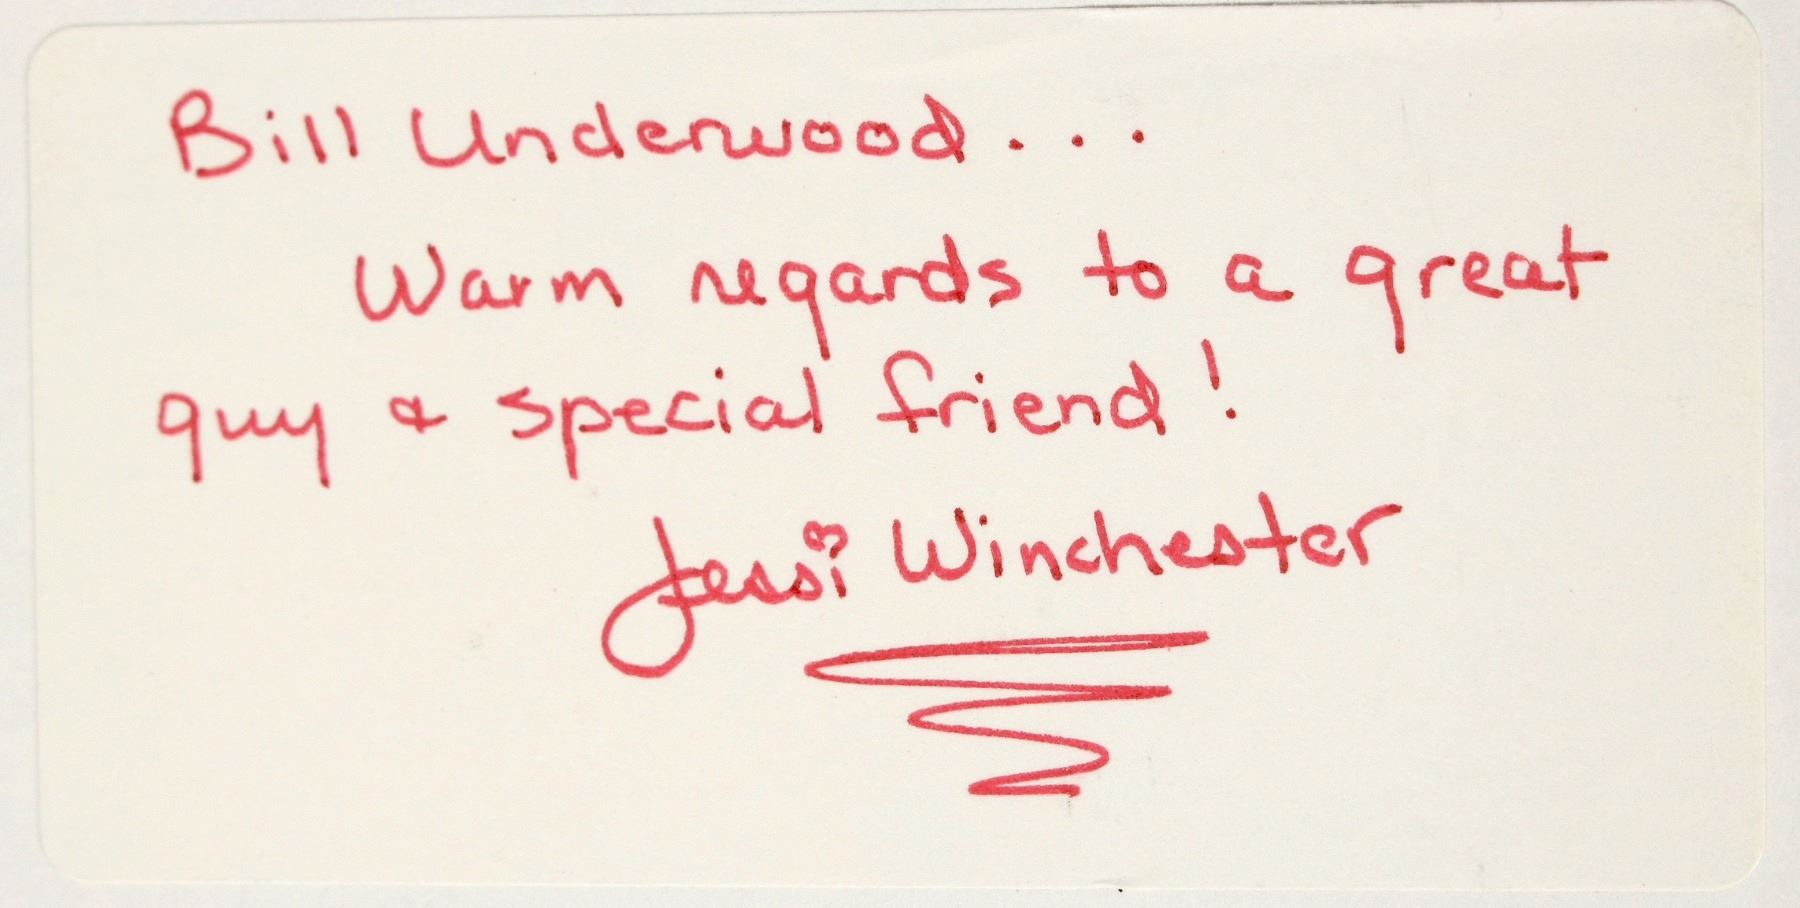 Bill Underwood...
Warm regards to a great
guy & special friend!
Jessi Winchester